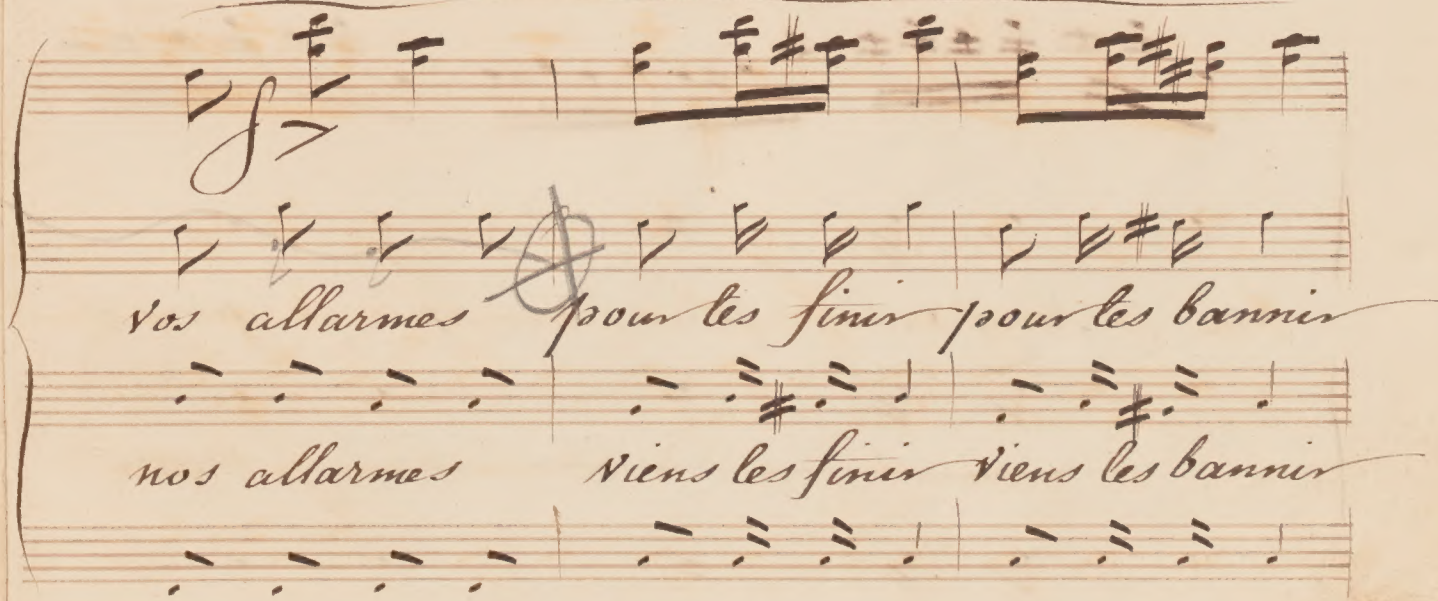 f
vos allarmes pour les finir pour les bannir
nos allarmes viens les finir viens les bannir